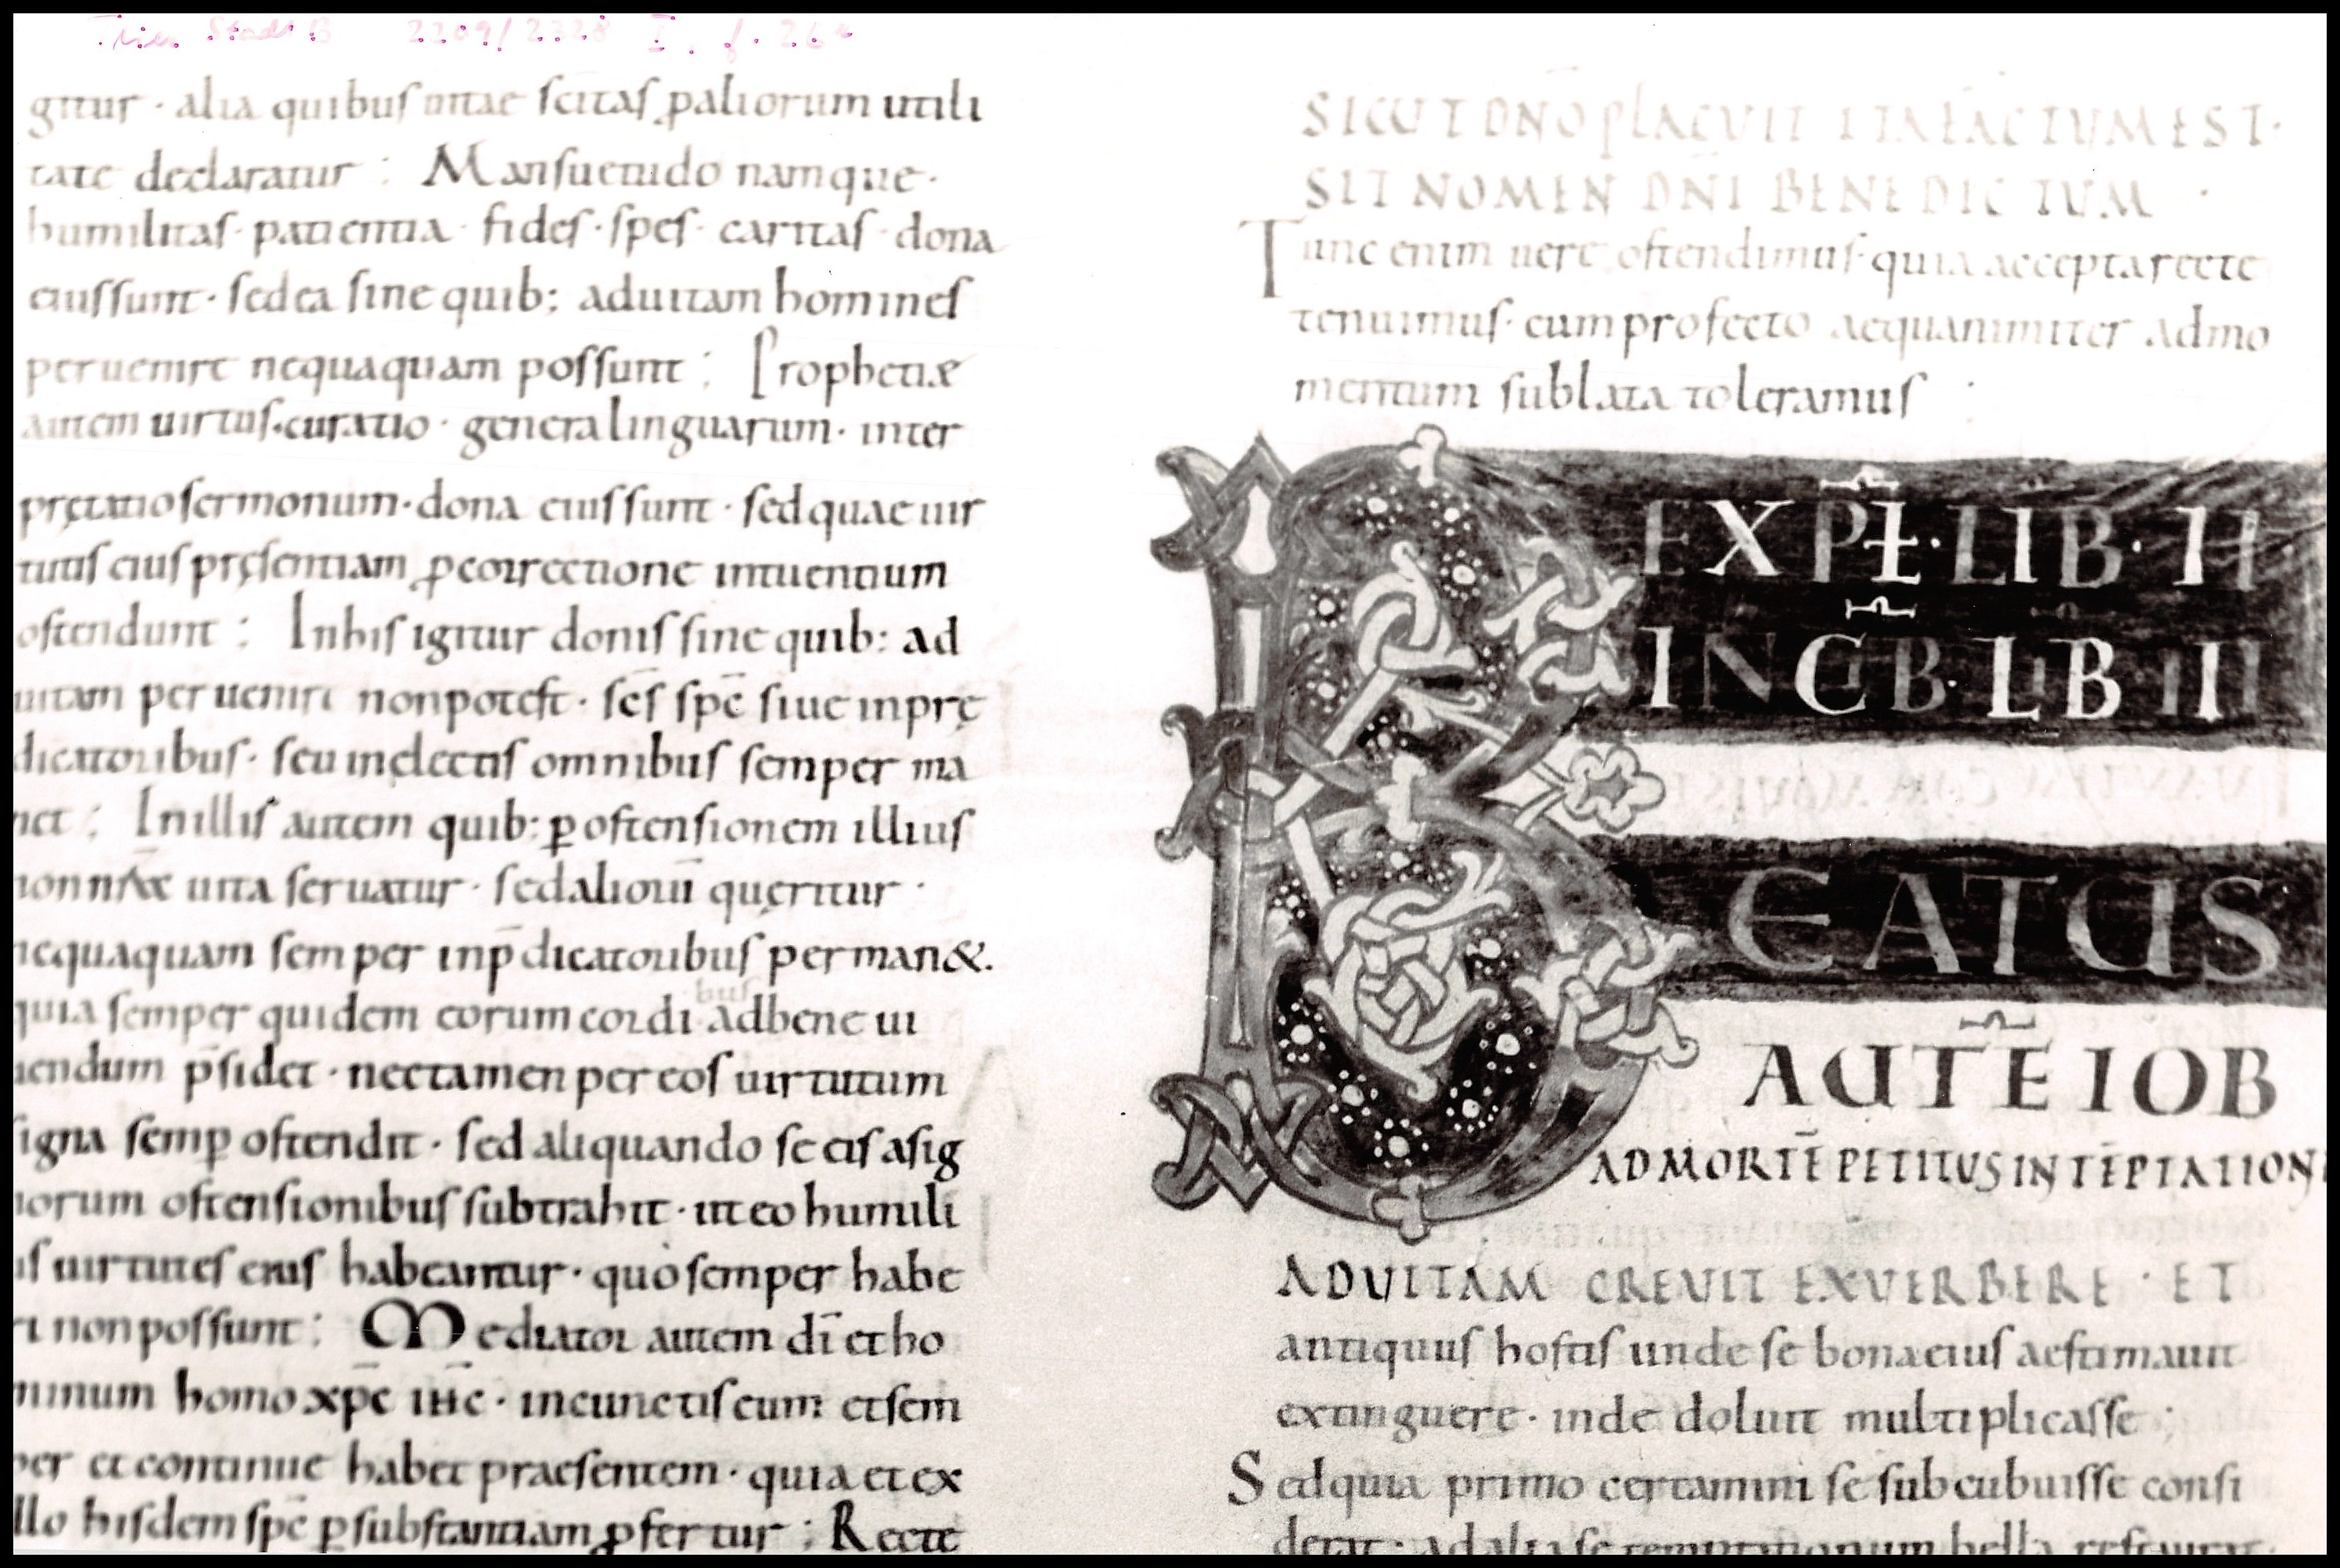 Trier StadtB 2209/2328 I, f. 26v
gitur · alia quibus uitae scitas ꝓ aliorum utili
tate declaratur : Mansuetudo namque ·
humilitas · patientia · fides · spes · caritas · dona
eius sunt · sed ea sine quib; ad uitam homines
peruenire nequaquam possunt : Prophetiæ
autem uirtus · curatio · genera linguarum · inter
pretatio sermonum · dona eius sunt · sed quae uir
tutis eius pręsentiam ꝓ correctione intuentium
ostendunt : In his igitur donis sine quib: ad
uitam peruenire non potest · sc̄s sp̄c siue in prę
dicatoribus · seu in electis omnibus semper ma
net : In illis autem quib: ꝑ ostensionem illius
non nr̄ae uita seruatur · sed alioru̅ quęritur ·
nequaquam semper in p̄dicatoribus perman&.
quia semper quidem eorum cordibus ad bene ui
uendum p̄sidet · nec tamen per eos uirtutum
signa semꝑ ostendit · sed aliquando se eis a sig
norum ostensionibus subtrahit · ut eo humili
us uirtutes eius habeantur · quo semper habe
ri non possunt : Mediator autem dī et ho
minum homo xp̄c ih̄c · in cunctis eum et sem
per et continue habet praesentem · quia et ex
illo hisdem sp̄c ꝑ substantiam ꝓfertur ; Recte
SICUT DN̄O PLACUIT ITA FACTUM EST ·
SIT NOMEN DN̄I BENEDICTUM ·
Tunc enim uere ostendimus · quia accepta recte
tenuimus · cum profecto aequanimiter ad mo
mentum sublata toleramus :
EXPŁ · LIB · II
INC̄ B · LIB III
BEATUS
AUTĒ IOB
AD MORTĒ PETITUS IN TĒPTATION
AD UITAM CREUIT EX VERBERE · ET
antiquus hostis unde se bona eius aestimauit
extinguere · inde doluit multiplicasse ;
Sed quia primo certamini se subcubuisse consi
derat · ad alia se temptationum bella restaurat ·